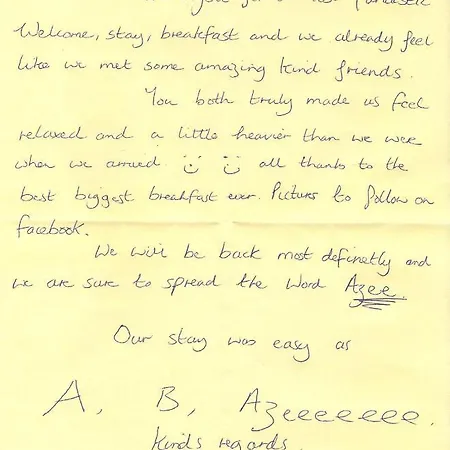 fantastic
Welcome, stay, breakfast and we already feel
like we met some amazing kind friends.
You both truly made us feel
relaxed and a little heavier than we were
when we arrived all thanks to the
best biggest breakfast ever. Pictures to follow on
facebook.
We will be back most definetly and
we are sure to spread the word Azee.
Our stay was easy as
A, B, Azeeeeeee.
Kinds regards.